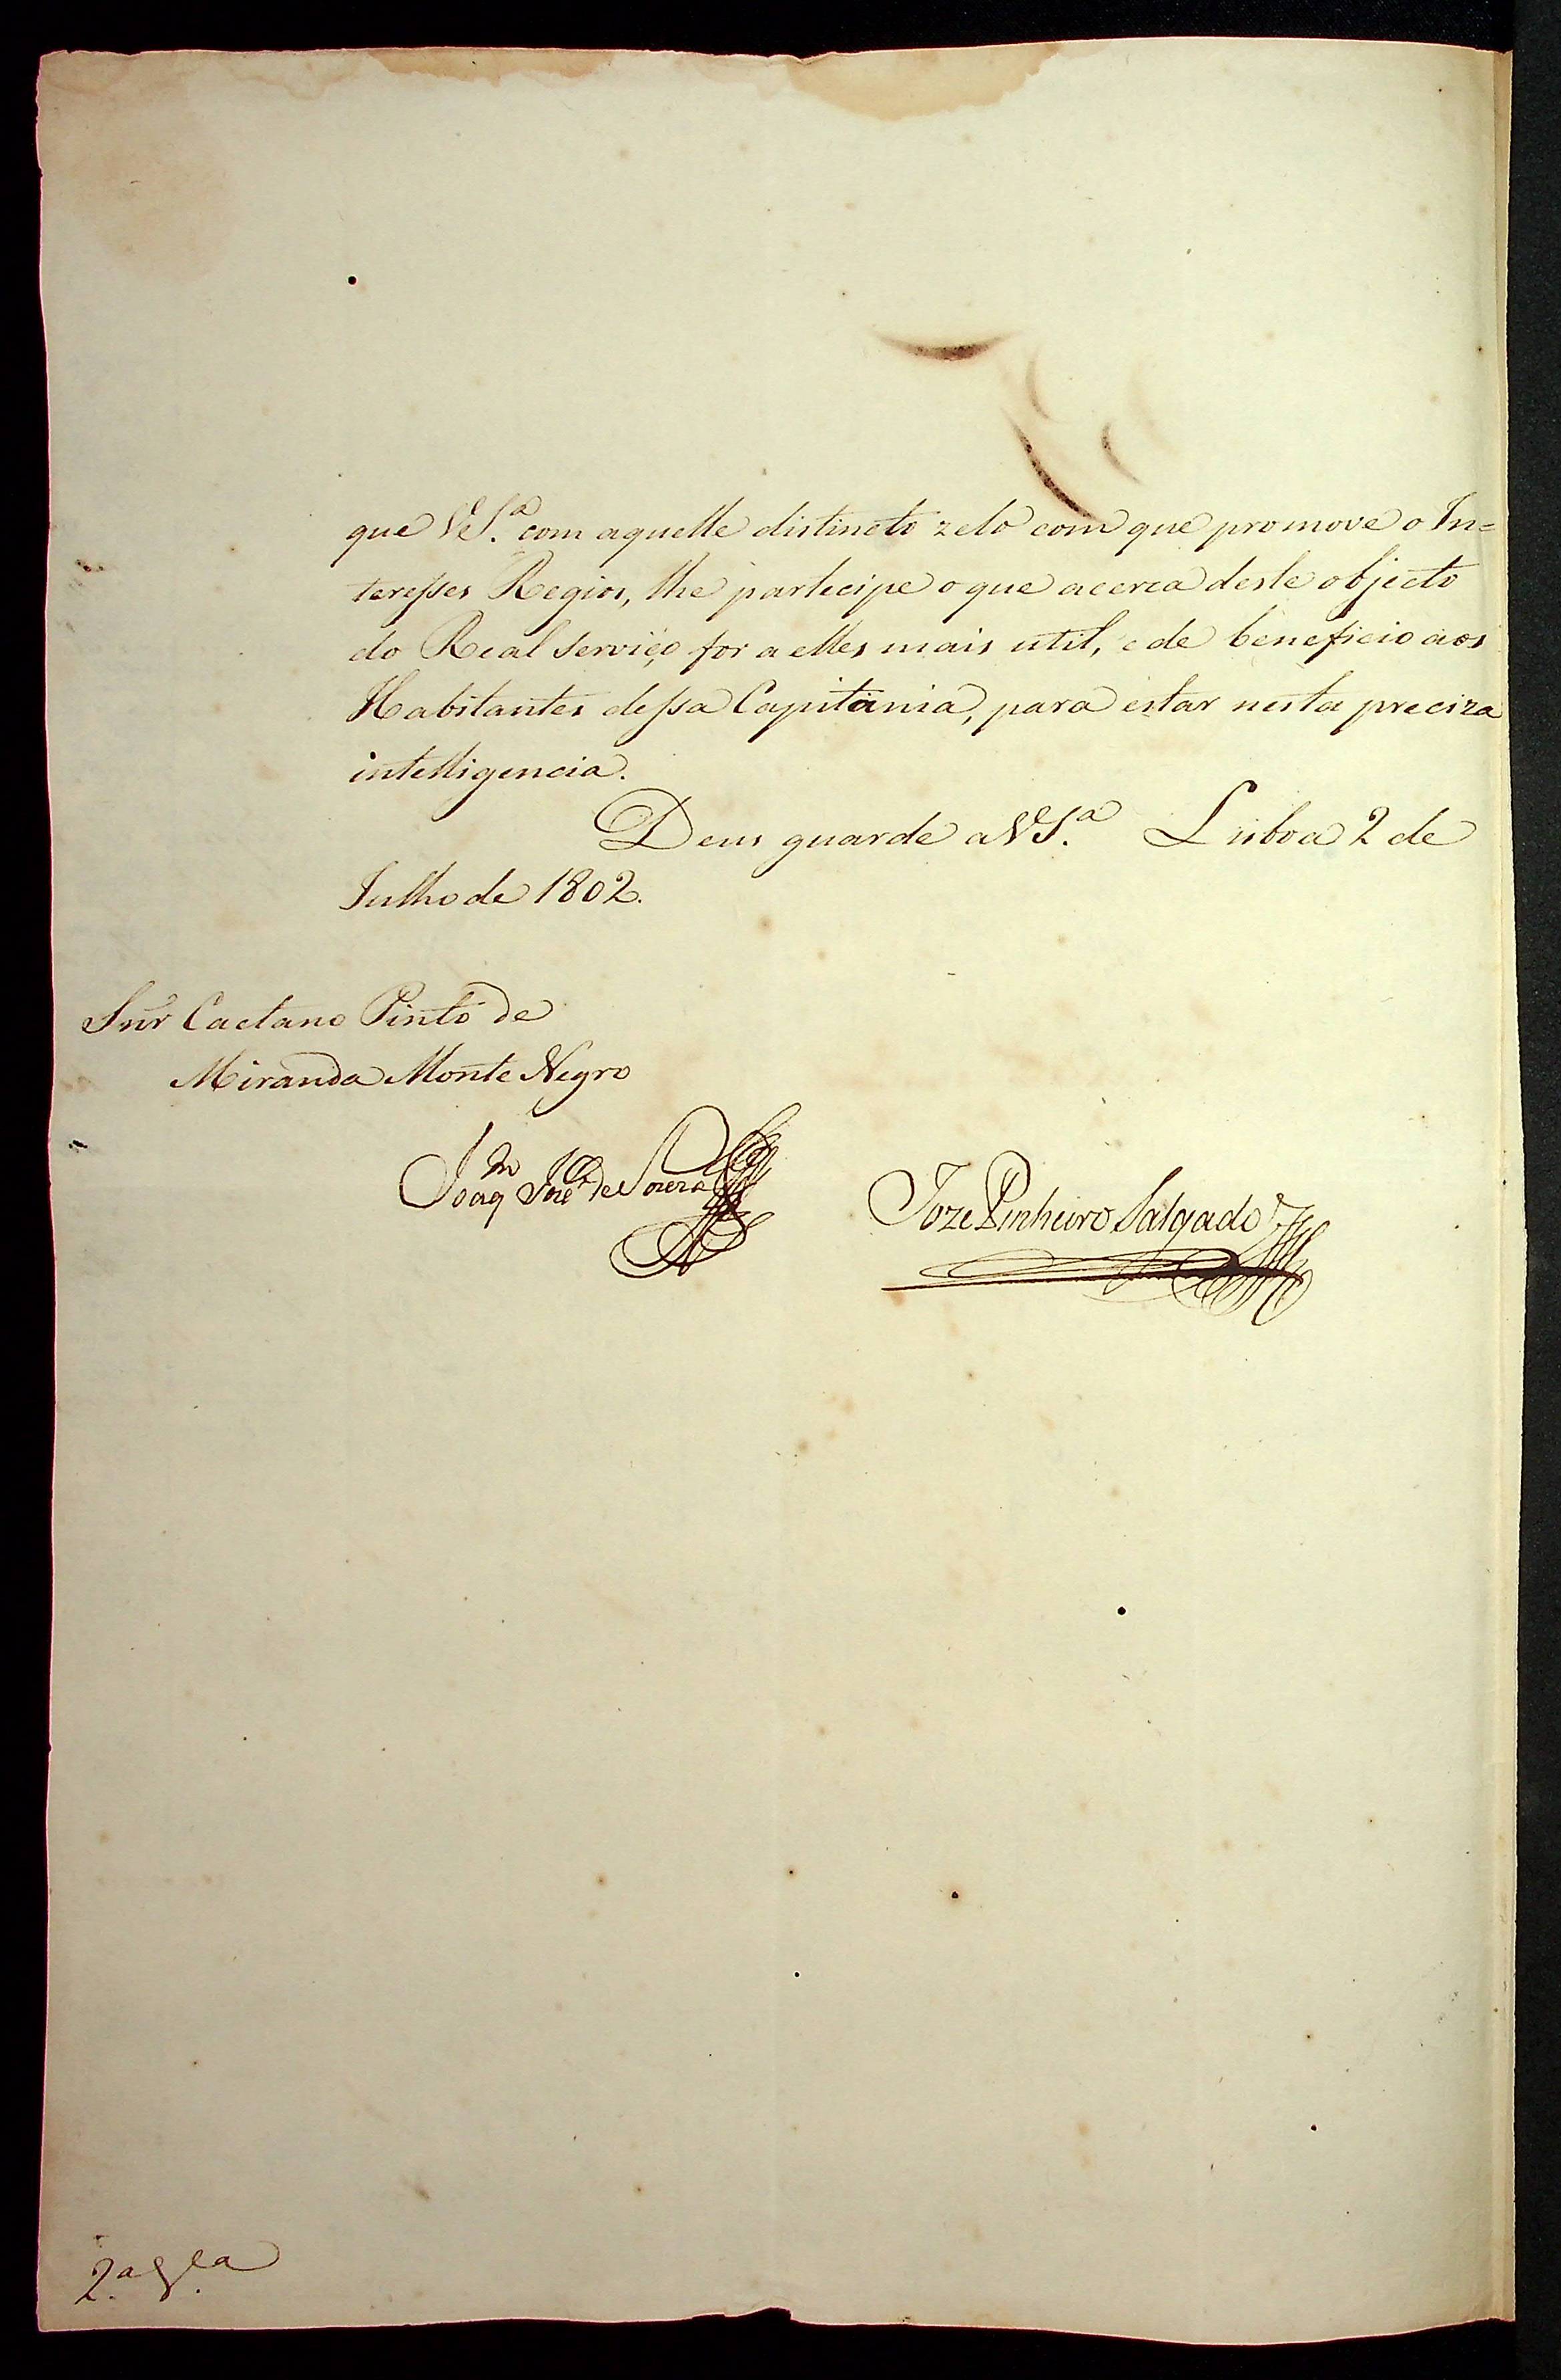 que V.S.ª com aquelle distincto zelo com que promove o In=
teresses Regios, lhe participe o que acerca deste objecto
do Real serviço for a elles mais util, e de beneficio aos
Habitantes dessa Capitania, para estar nesta preciza
intelligencia.
Deus guarde a V.S.ª Lisboa 2 de
Julho de 1802.
Snr Caetano Pinto de
Miranda Monte Negro
Joaqm Joze de Souza
Joze Pinheiro Salgado
2.ª V.ª